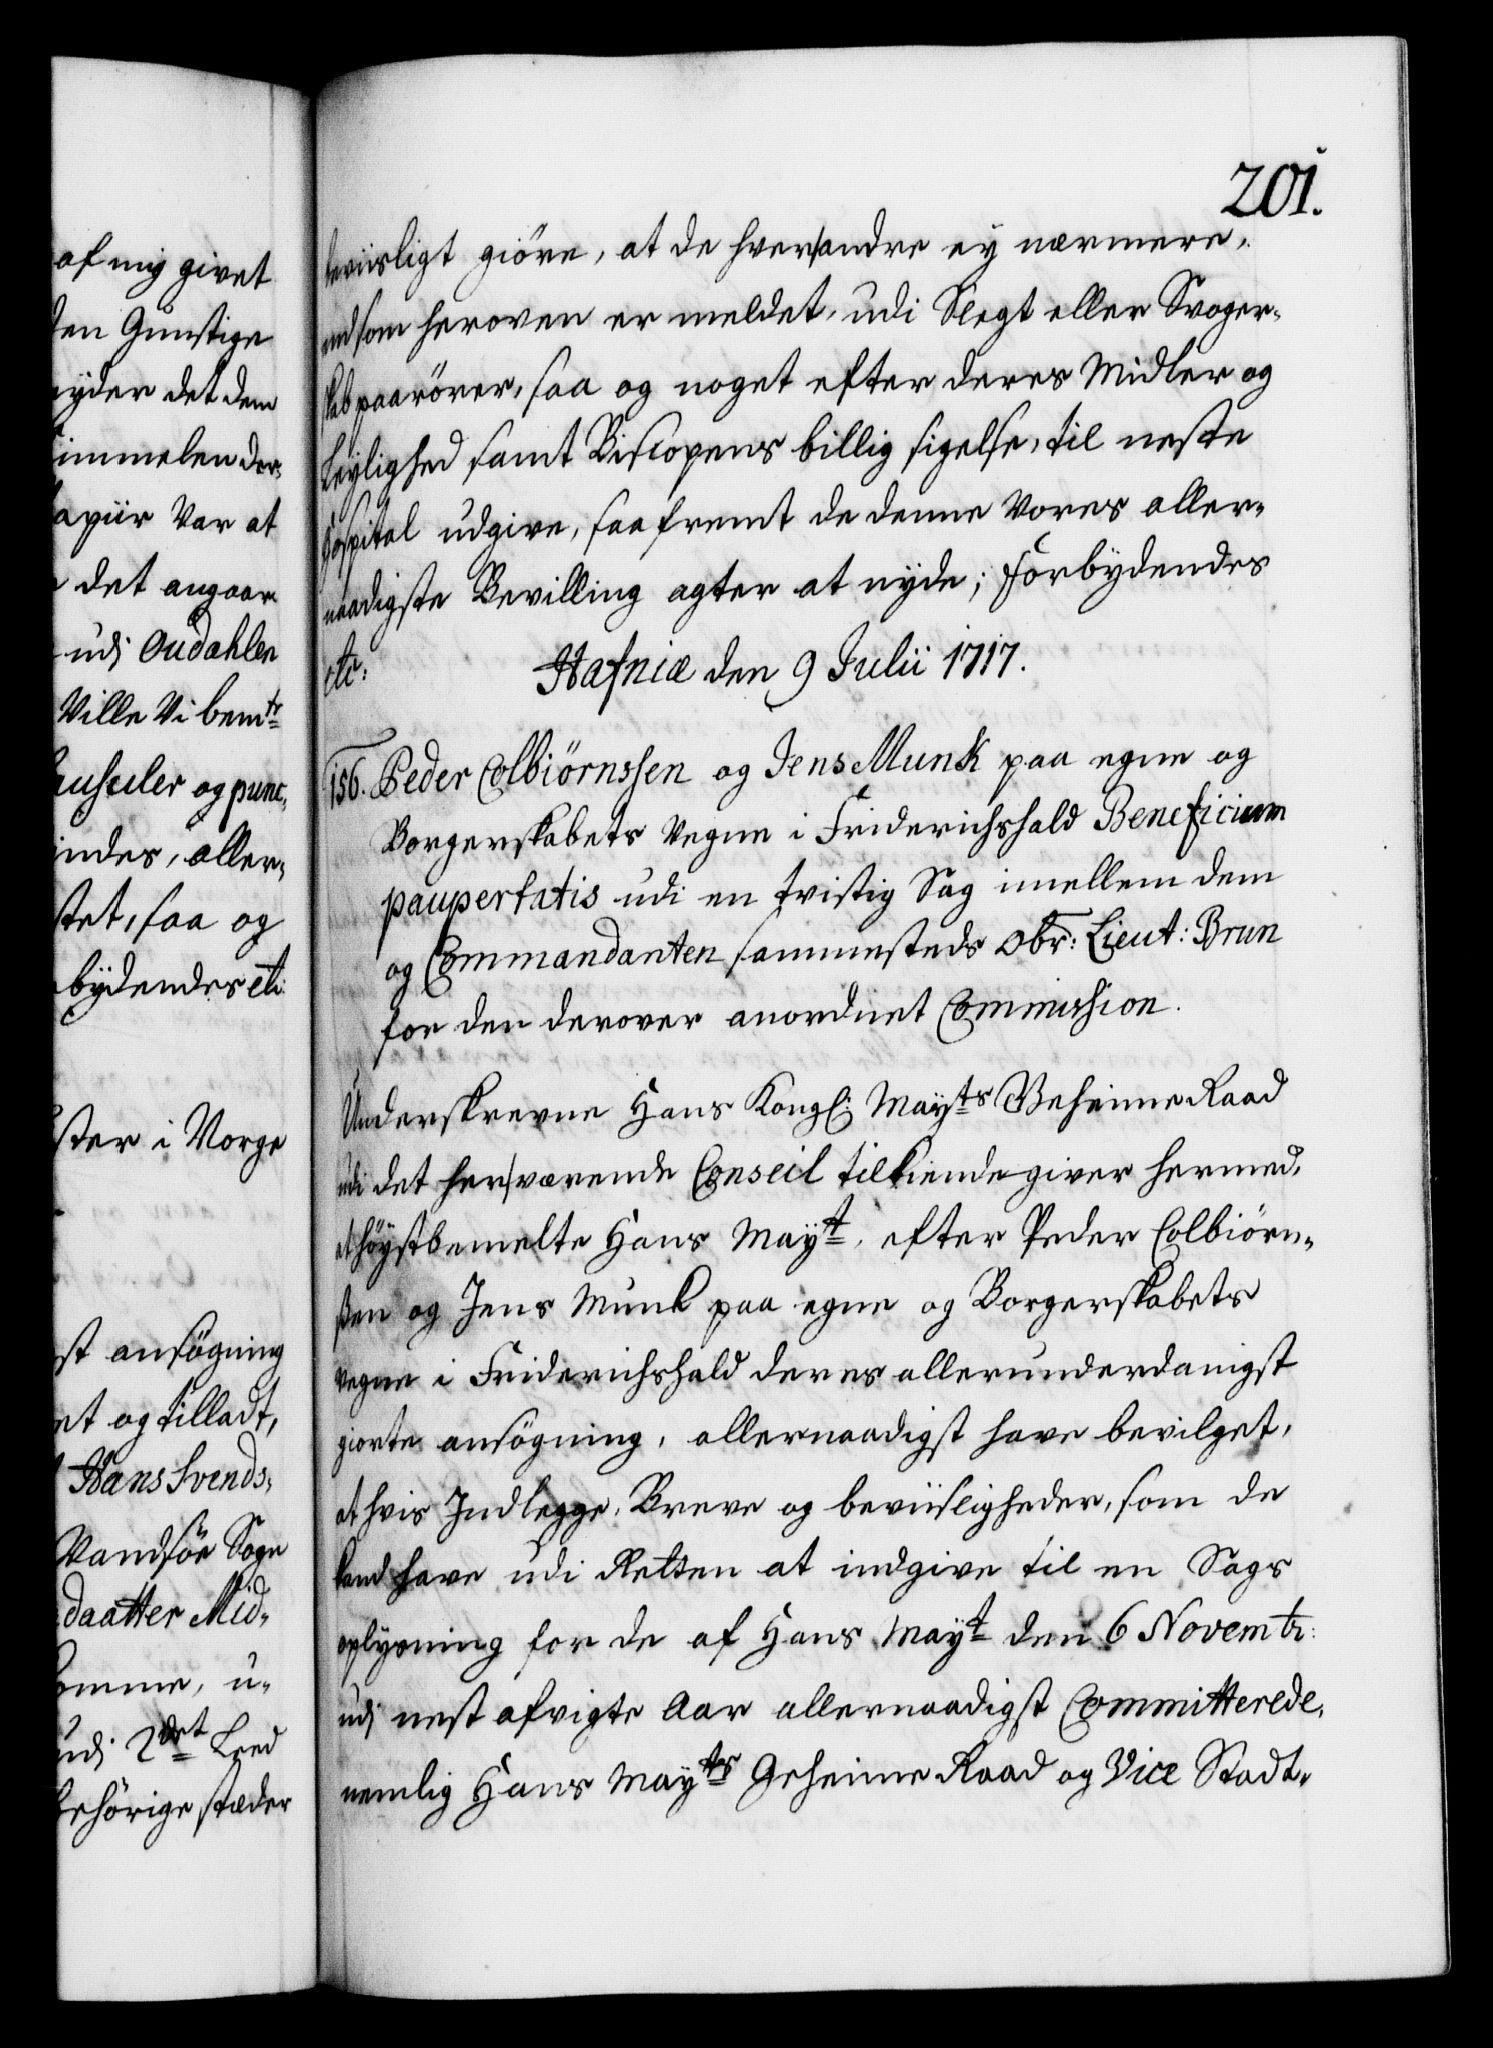 201.
af mig givet
den Gunstige
nyder det dem
immelen der„
apiir Var at
det angaar
udj Oudahlen
Ville Vi bemte
ausuler og punc„
indes, aller„
tet, saa og
bydendes etc:
ster i Norge
st ansøgning
et og tilladt,
Hans Svends„
Vandsöe Sogn
daatter Mid„
komme, u„
udj 2det Leed
behörige stæder
beviisligt giöre, at de hverandre ey nærmere,
end som heroven er meldet, udi Slegt eller Svoger„
skab paarörer, saa og noget efter deres Midler og
Leylighed samt Biscopens billig sigelse, til neste
Hospital udgive, saafremt de denne Vores aller„
naadigste Bevilling agter at nyde; Forbydendes
etc: Hafniæ den 9 Julii 1717.
156. Peder Colbiörnssen og Jens Munk paa egne og
Borgerskabets Vegne i Friderichshald Beneficium
paupertatis udi en tvistig Sag imellem dem
og Commandanten sammesteds Obr: Lieut: Brun
for den derover anordnet Commission.
Underskrevne Hans Kongl: Mayts Geheime Raad
udi det herværende Conseil tilkiende giver hermed,
at höystbemelte Hans Mayt, efter Peder Colbiörn„
ßen og Jens Munk paa egne og Borgerskabets
vegne i Friderichshald deres allerunderdanigst
giorte ansögning, allernaadigst have bevilget,
at hvis Indlegge, Breve og beviisligheder, som de
kand have udi Retten at indgive til en Sags
oplysning for de af Hans Mayt den 6 Novembr:
udj nest afvigte Aar allernaadigst Committerede,
nemlig Hans Mayts Geheime Raad og Vice Stadt„